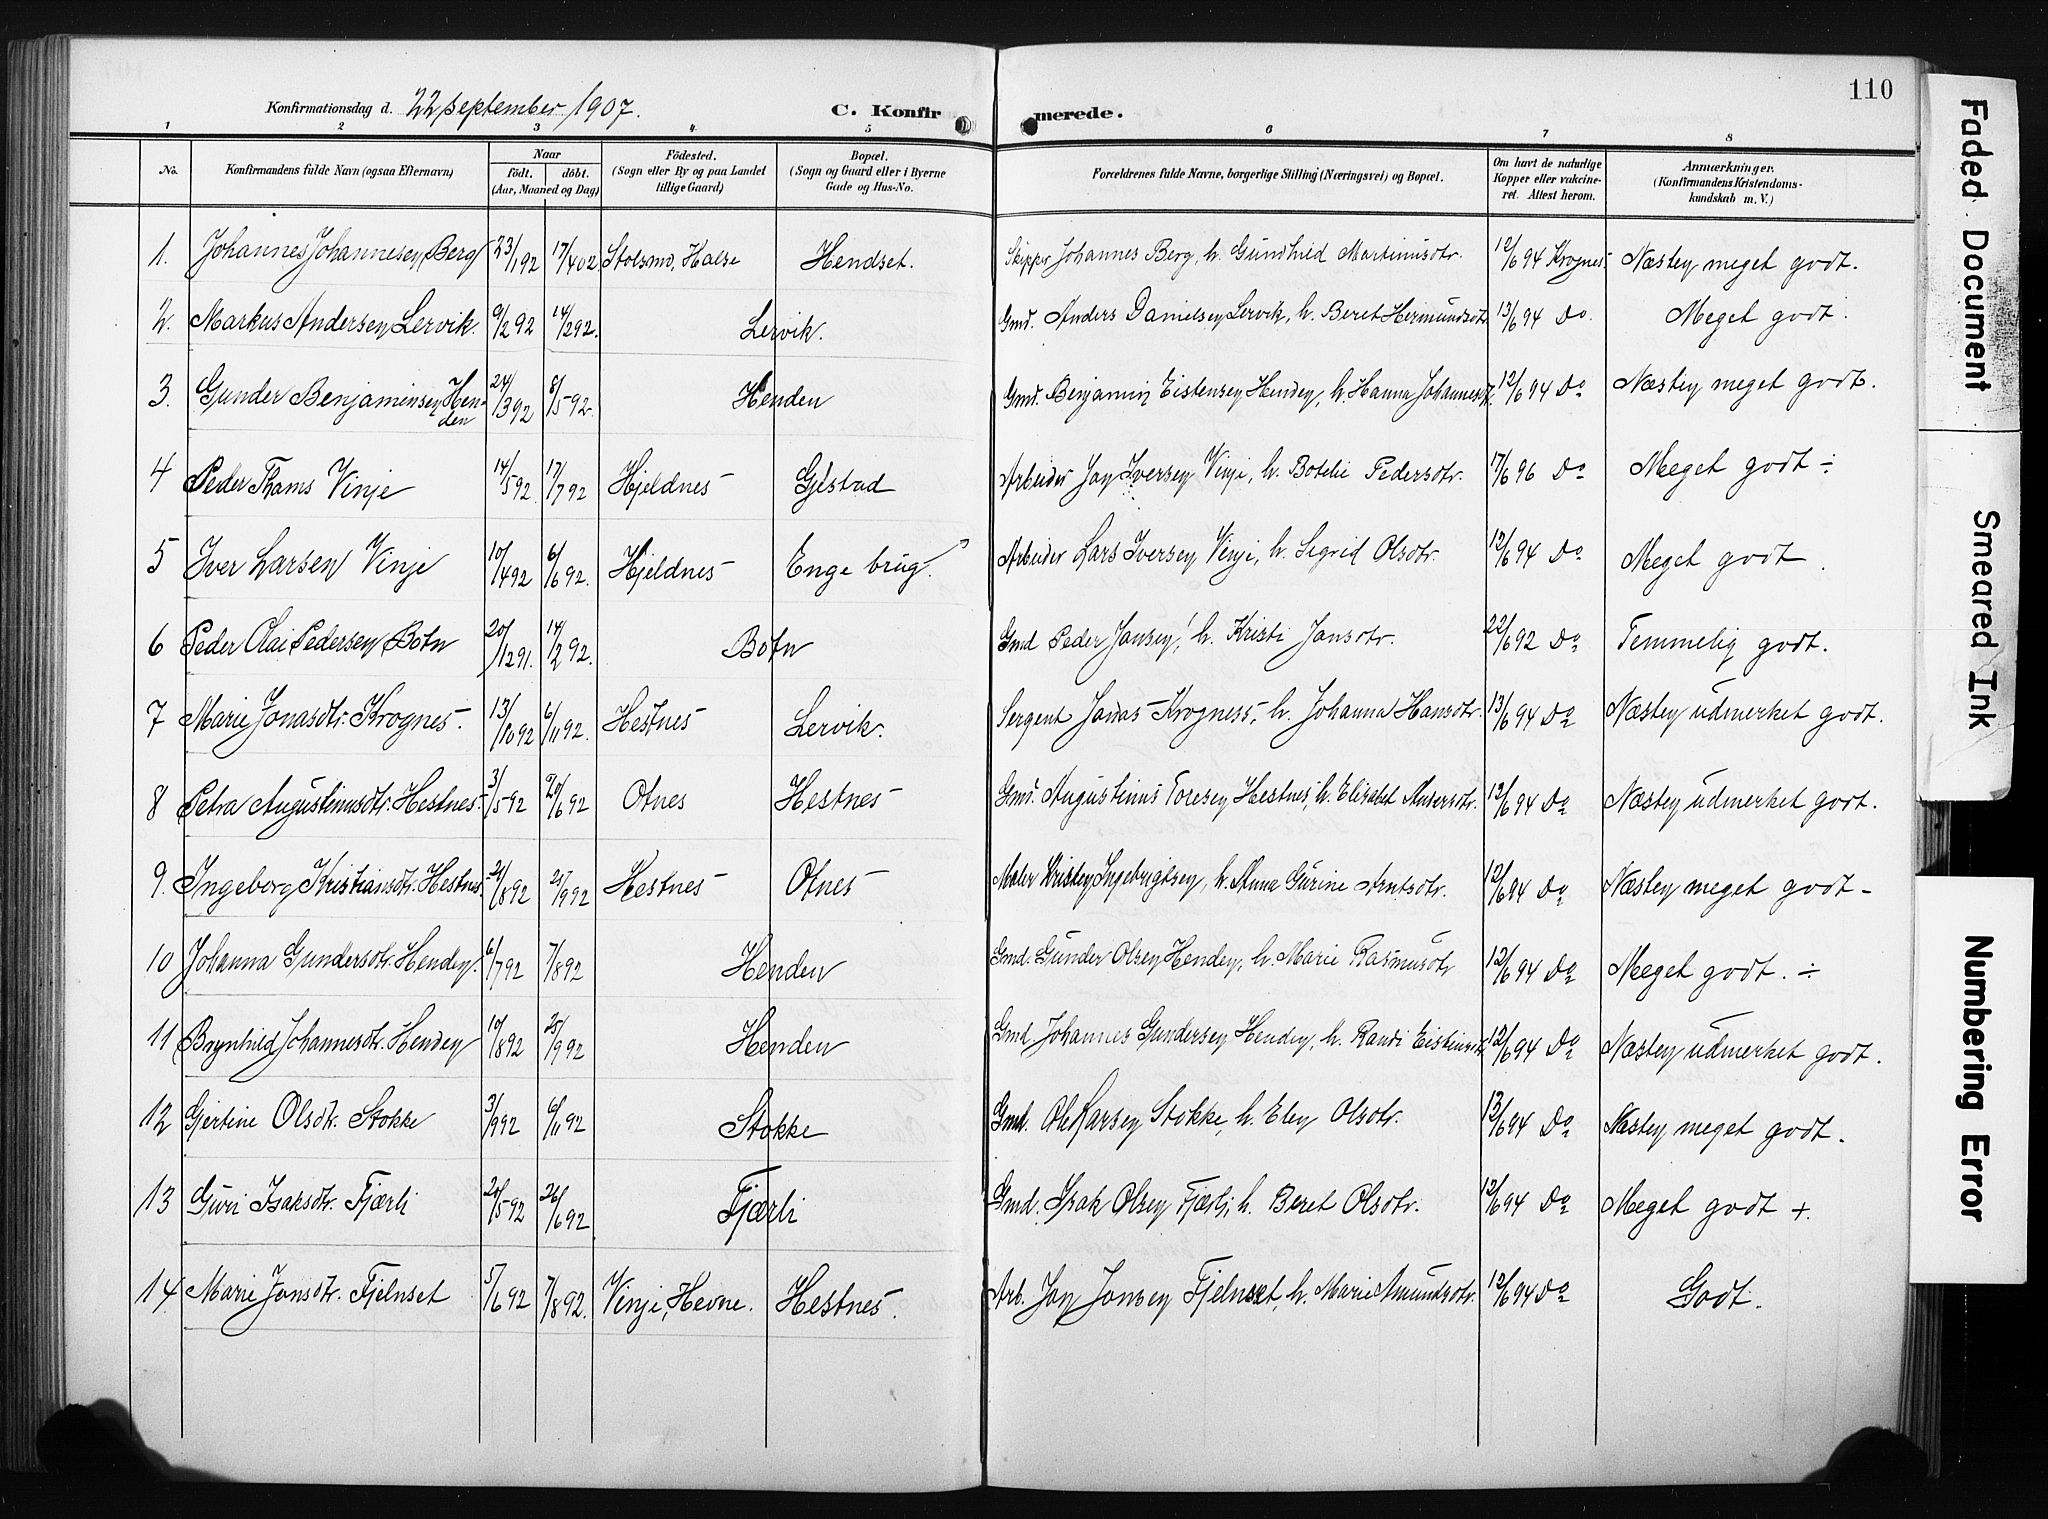 110
Konfirmationsdag d. 22 september 1907. C. Konfirmerede.
1 2 3 4 5 6 7 8
No. Konfirmandens fulde Navn (ogsaa Efternavn) Naar födt. döbt. (Aar, Maaned og Dag) Födested. (Sogn eller By og paa Landet tillige Gaard) Bopæl. (Sogn og Gaard eller i Byerne Gade og Hus-No. Forældrenes fulde Navne, borgerlige Stilling (Næringsvei) og Bopæl. Om havt de naturlige Kopper eller vakcineret. Attest herom. Anmærkninger. (Konfirmandens Kristendomskundskab m. V.)
1. Johannes Johannesen Berg 23/1 92 17/4 02 Stolsmo, Halse Hendset. Skipper Johannes Berg, h. Gundhild Martinusdtr. 12/6 94 Krognes. Næsten meget godt.
2. Markus Andersen Lervik. 9/2 92 14/2 92. Lervik. Gmd. Anders Danielsen Lervik, h. Beret Hermundsdtr. 13/6 94 Do. Meget godt.
3. Gunder Benjaminsen Henden 24/3 92 8/5 92. Henden Gmd. Benjamin Eistensen Henden, h. Hanna Johannesdt. 12/6 94 Do Næsten meget godt.
4 Peder Thams Vinje 14/5 92. 17/7 92 Hjeldnes Gjestad Arbeider Jon Iversen Vinje, h. Botelie Pedersdtr. 17/6 96 Do Meget godt ÷
5 Iver Larsen Vinje 10/4 92 6/6 92. Hjeldnes Enge brug. Arbeider Lars Iversen Vinje, h. Sigrid Olsdtr. 12/6 94 Do Meget godt.
6 Peder Olai Pedersen Botn 20/12 91. 14/2 92. Botn Gmd Peder Jansen, h. Kristi Jansdtr. 22/6 92 Do Temmelig godt.
7 Marie Jonasdtr. Krognes. 13/10 92 6/11 92. Hestnes Lervik. Sergent Jonas Krogness, h. Johanna Hansdtr. 13/6 94 Do Næsten udmerket godt.
8 Petra Augustinusdtr. Hestnes. 3/5 92 /6 92 Otnes Hestnes Gmd. Augustinus Toresen Hestnes, h. Elisabet Andersdtr. 12/6 94 Do Næsten udmerket godt.
9. Ingeborg Kristiansdtr. Hestnes. /8 92 25/9 92 Hestnes Otnes Maler Kristen Ingebrigtsen, h. Anna Gurine Arntsdtr. 12/6 94 Do Næsten meget godt -
10 Johanna Gundersdtr. Henden. 6/7 92 7/8 92 Henden Gmd. Gunder Olsen Henden, h. Marie Rasmusdtr 12/6 94 Do Meget godt. ÷
11 Brynhild Johannesdtr. Henden 10/8 92 25/9 92 Henden Gmd. Johannes Gundersen Henden, h. Randi Eistensdtr. 12/6 94 Do Næsten udmerket godt.
12 Gjertine Olsdtr. Stokke 3/9 92 6/11 92 Stokke Gmd. Ole Larsen Stokke, h. Elen Olsdtr. 13/6 94 Do Næsten meget godt.
13 Guri Isaksdtr. Fjærli 20/5 92 26/6 92 Fjærli Gmd. Isak Olsen Fjærli, h. Beret Olsdtr. 12/6 94 Do Meget godt +.
14 Marie Jonsdtr. Fjelnset 5/6 92 7/8 92. Vinje, Hevne. Hestnes. Arb. Jon Jonsen Fjelnset, h. Marie Amundsdtr. 12/6 94 Do Godt.
Faded Document
Smeared Ink
Numbering Error